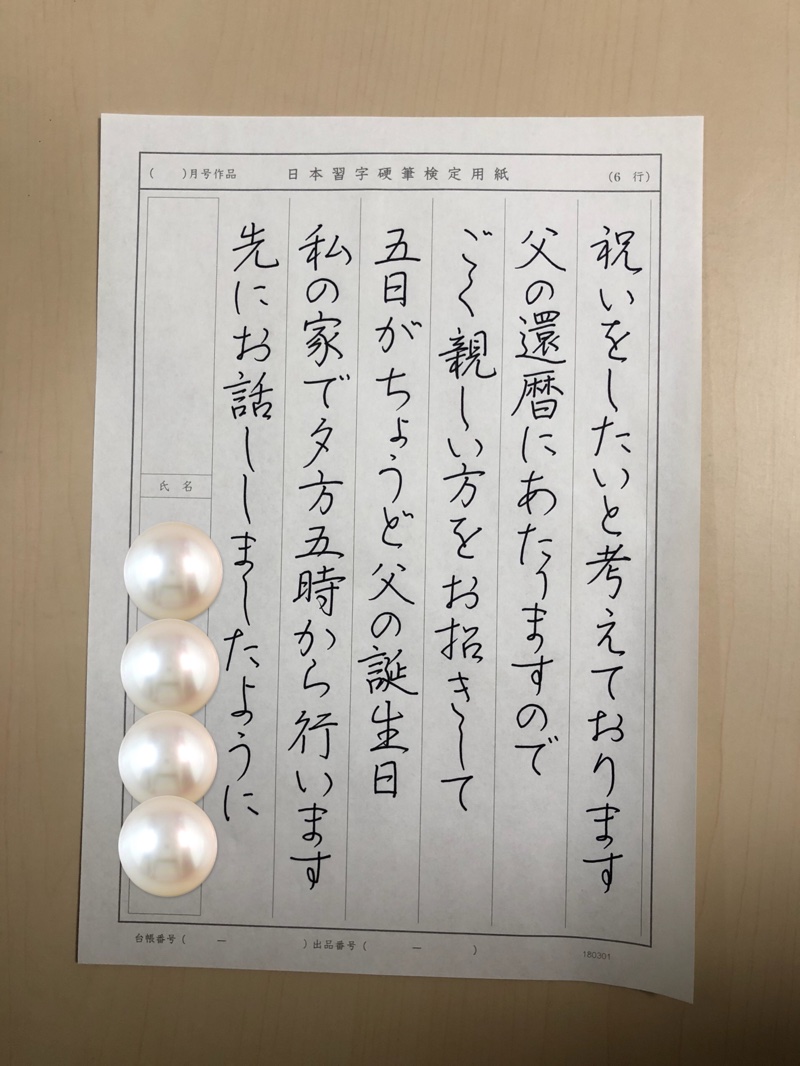 (　　)月号作品　日本習字硬筆検定用紙　(6 行)
祝いをしたいと考えております
父の還暦にあたりますので
ごく親しい方をお招きして
五日がちょうど父の誕生日
私の家で夕方五時から行います
先にお話ししましたように
氏名
台帳番号(　　ー　　)出品番号(　　ー　　)
180301